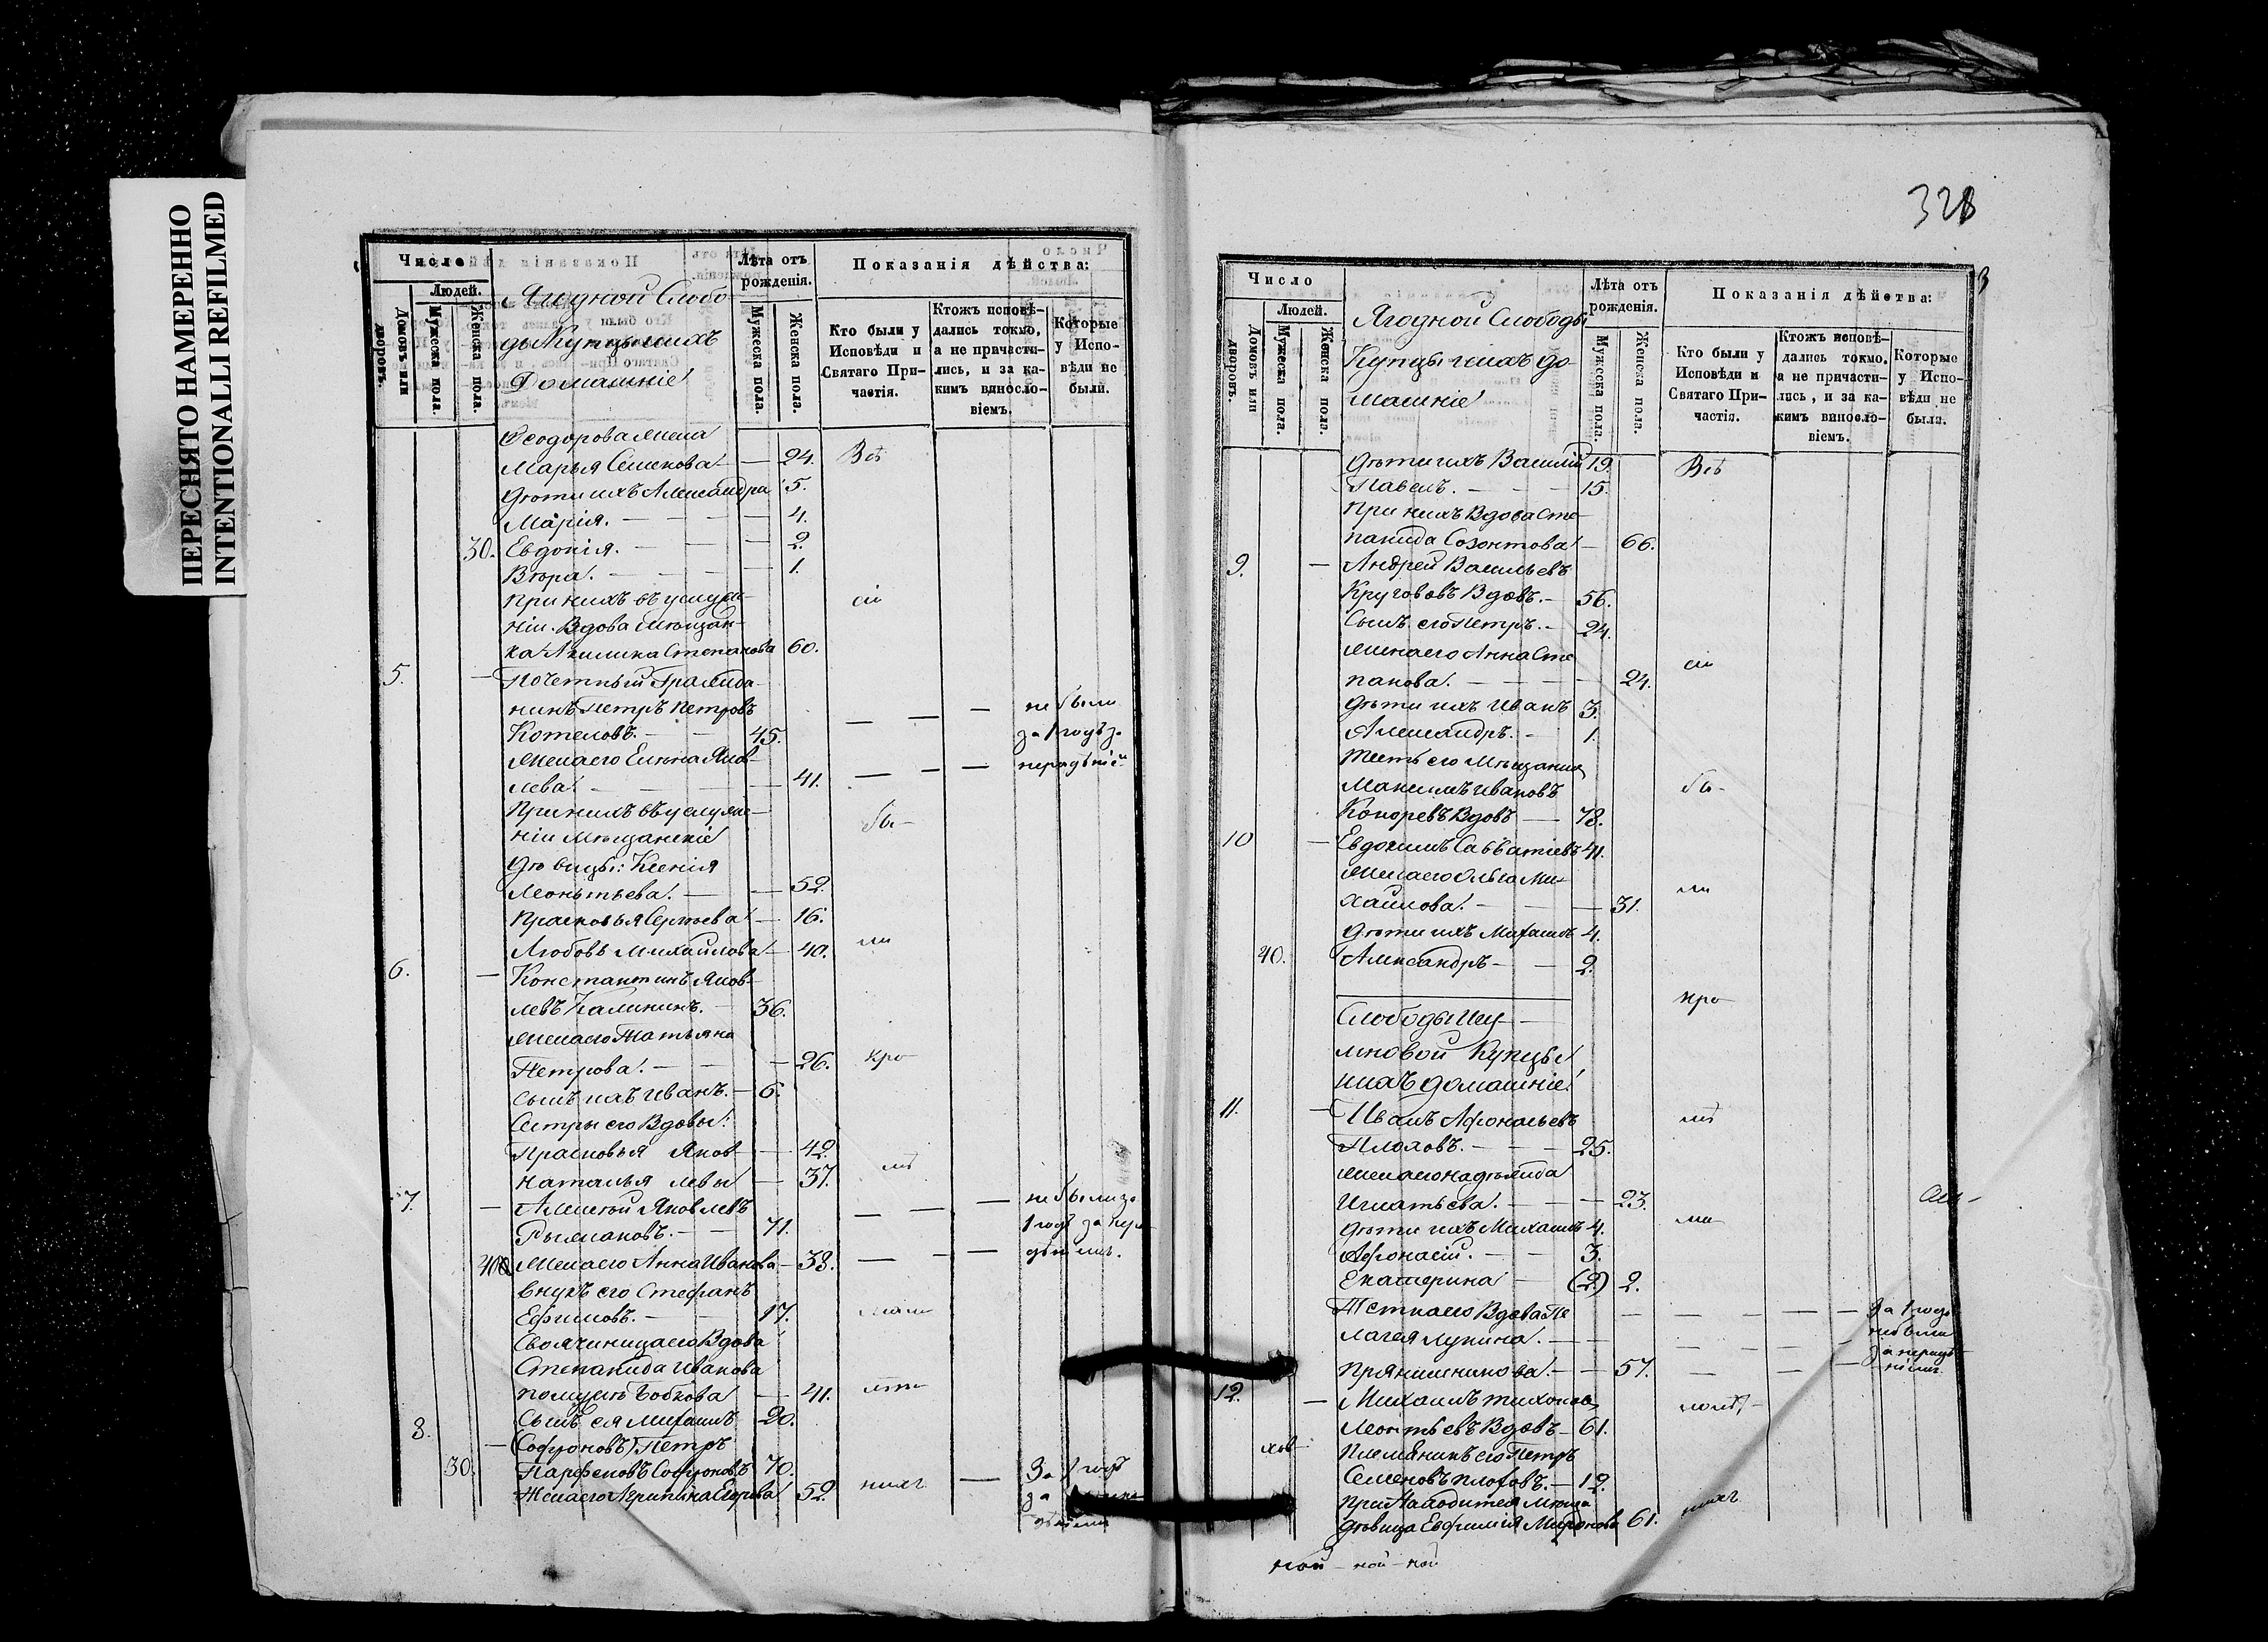 ПЕРЕСНЯТО НАМЕРЕННО
INTENTIONALLI REFILMED
Число
Людей.
Домовъ или дворовъ.
Мужеска пола.
Женска пола.
Ягодной Слобо-
ды Купцы и ихъ
Домашніе
Лѣта отъ рожденія.
Мужеска пола.
Женска пола.
Показанія дѣйства:
Кто были у Исповѣди и Святаго Причастія.
Ктожъ исповѣ-дались токмо, а не причасти-лись, и за ка-кимъ винословіемъ.
Которые у Испо-вѣди не были.
Феодорова жена
Марья Семенова — 24. Всѣ
дѣти ихъ Александра 5.
Марія. — 4.
30. Евдокія. — 2.
Вѣра. — 1.
При нихъ въ услуже-
ніи. Вдова Мѣщан-
ка Акилина Степанова 60.
5. — Почетный Гражда-
нинъ Петръ Петровъ не были
Котеловъ. — 45. за 1 годъ за
жена его Елена Яков-
лева — 41.
При нихъ въ услуже-
ніи Мѣщанскіе
дѣвицы: Ксенія
Леонтьева. — 52.
Прасковья Сергѣева — 16.
Любовь Михайлова — 40.
6. — Константинъ Яков-
левъ Калининъ. — 36.
жена его Татьяна
Петрова. — 26.
сынъ ихъ Иванъ. — 6.
Сестры его Вдовы:
Прасковья Яков- — 42.
Наталья левы — 37.
7. — Алексѣй Яковлевъ не были за
— 71. 1 годъ за нера-
40 жена его Анна Иванова — 38. дѣніемъ.
внукъ его Стефанъ
Ефимовъ. — 17.
Своячиница его Вдова
Степанида Иванова
по мужѣ Бобкова — 41.
Сынъ ея Михаилъ 20.
8. — (Софроновъ) Петръ
30. Парфеновъ Софроновъ 70. За 1 годъ
Жена его Агрипина Егорова 52.
328
Число
Людей.
Домовъ или дворовъ.
Мужеска пола.
Женска пола.
Ягодной Слободы
Купцы и ихъ до-
машніе
Лѣта отъ рожденія.
Мужеска пола.
Женска пола.
Показанія дѣйства:
Кто были у Исповѣди и Святаго Причастія.
Ктожъ исповѣ-дались токмо, а не причасти-лись, и за ка-кимъ винословіемъ.
Которые у Испо-вѣди не были.
дѣти ихъ Василій 19. Всѣ
Павелъ. — 15.
При нихъ Вдова Сте-
панида Созонтова — 66.
9. — Андрей Васильевъ
Круговъ Вдовъ. — 56.
Сынъ его Петръ. — 24.
жена его Анна Сте-
панова. — 24.
дѣти ихъ Иванъ 3.
Александръ. — 1.
Тесть его Мѣщанинъ
Максимъ Ивановъ
Вдовъ — 78.
10 — Евдокимъ Савватіевъ 41.
жена его Ольга Ми-
хайлова. — 31.
дѣти ихъ Михаилъ 4.
40. Александръ — 2.
Слободы
Купцы и
ихъ домашніе
11. — Иванъ Афонасьевъ
Плоховъ. — 25.
жена его Надежда
Игнатьева. — 23.
дѣти ихъ Михаилъ 4.
Афонасій. — 3.
Екатерина — (2) 2.
Тетка его Вдова Пе- За 1 годъ
лагея Лукина. не были
Прянишникова. — 57. за нерадѣ-
ніемъ
12. — Михаилъ Тихоновъ
Леонтьевъ Вдовъ — 61.
Племянникъ его Петръ
Семеновъ Плоховъ. — 12.
дѣвица Евфимія Миронова 61.
ной - ной - ной